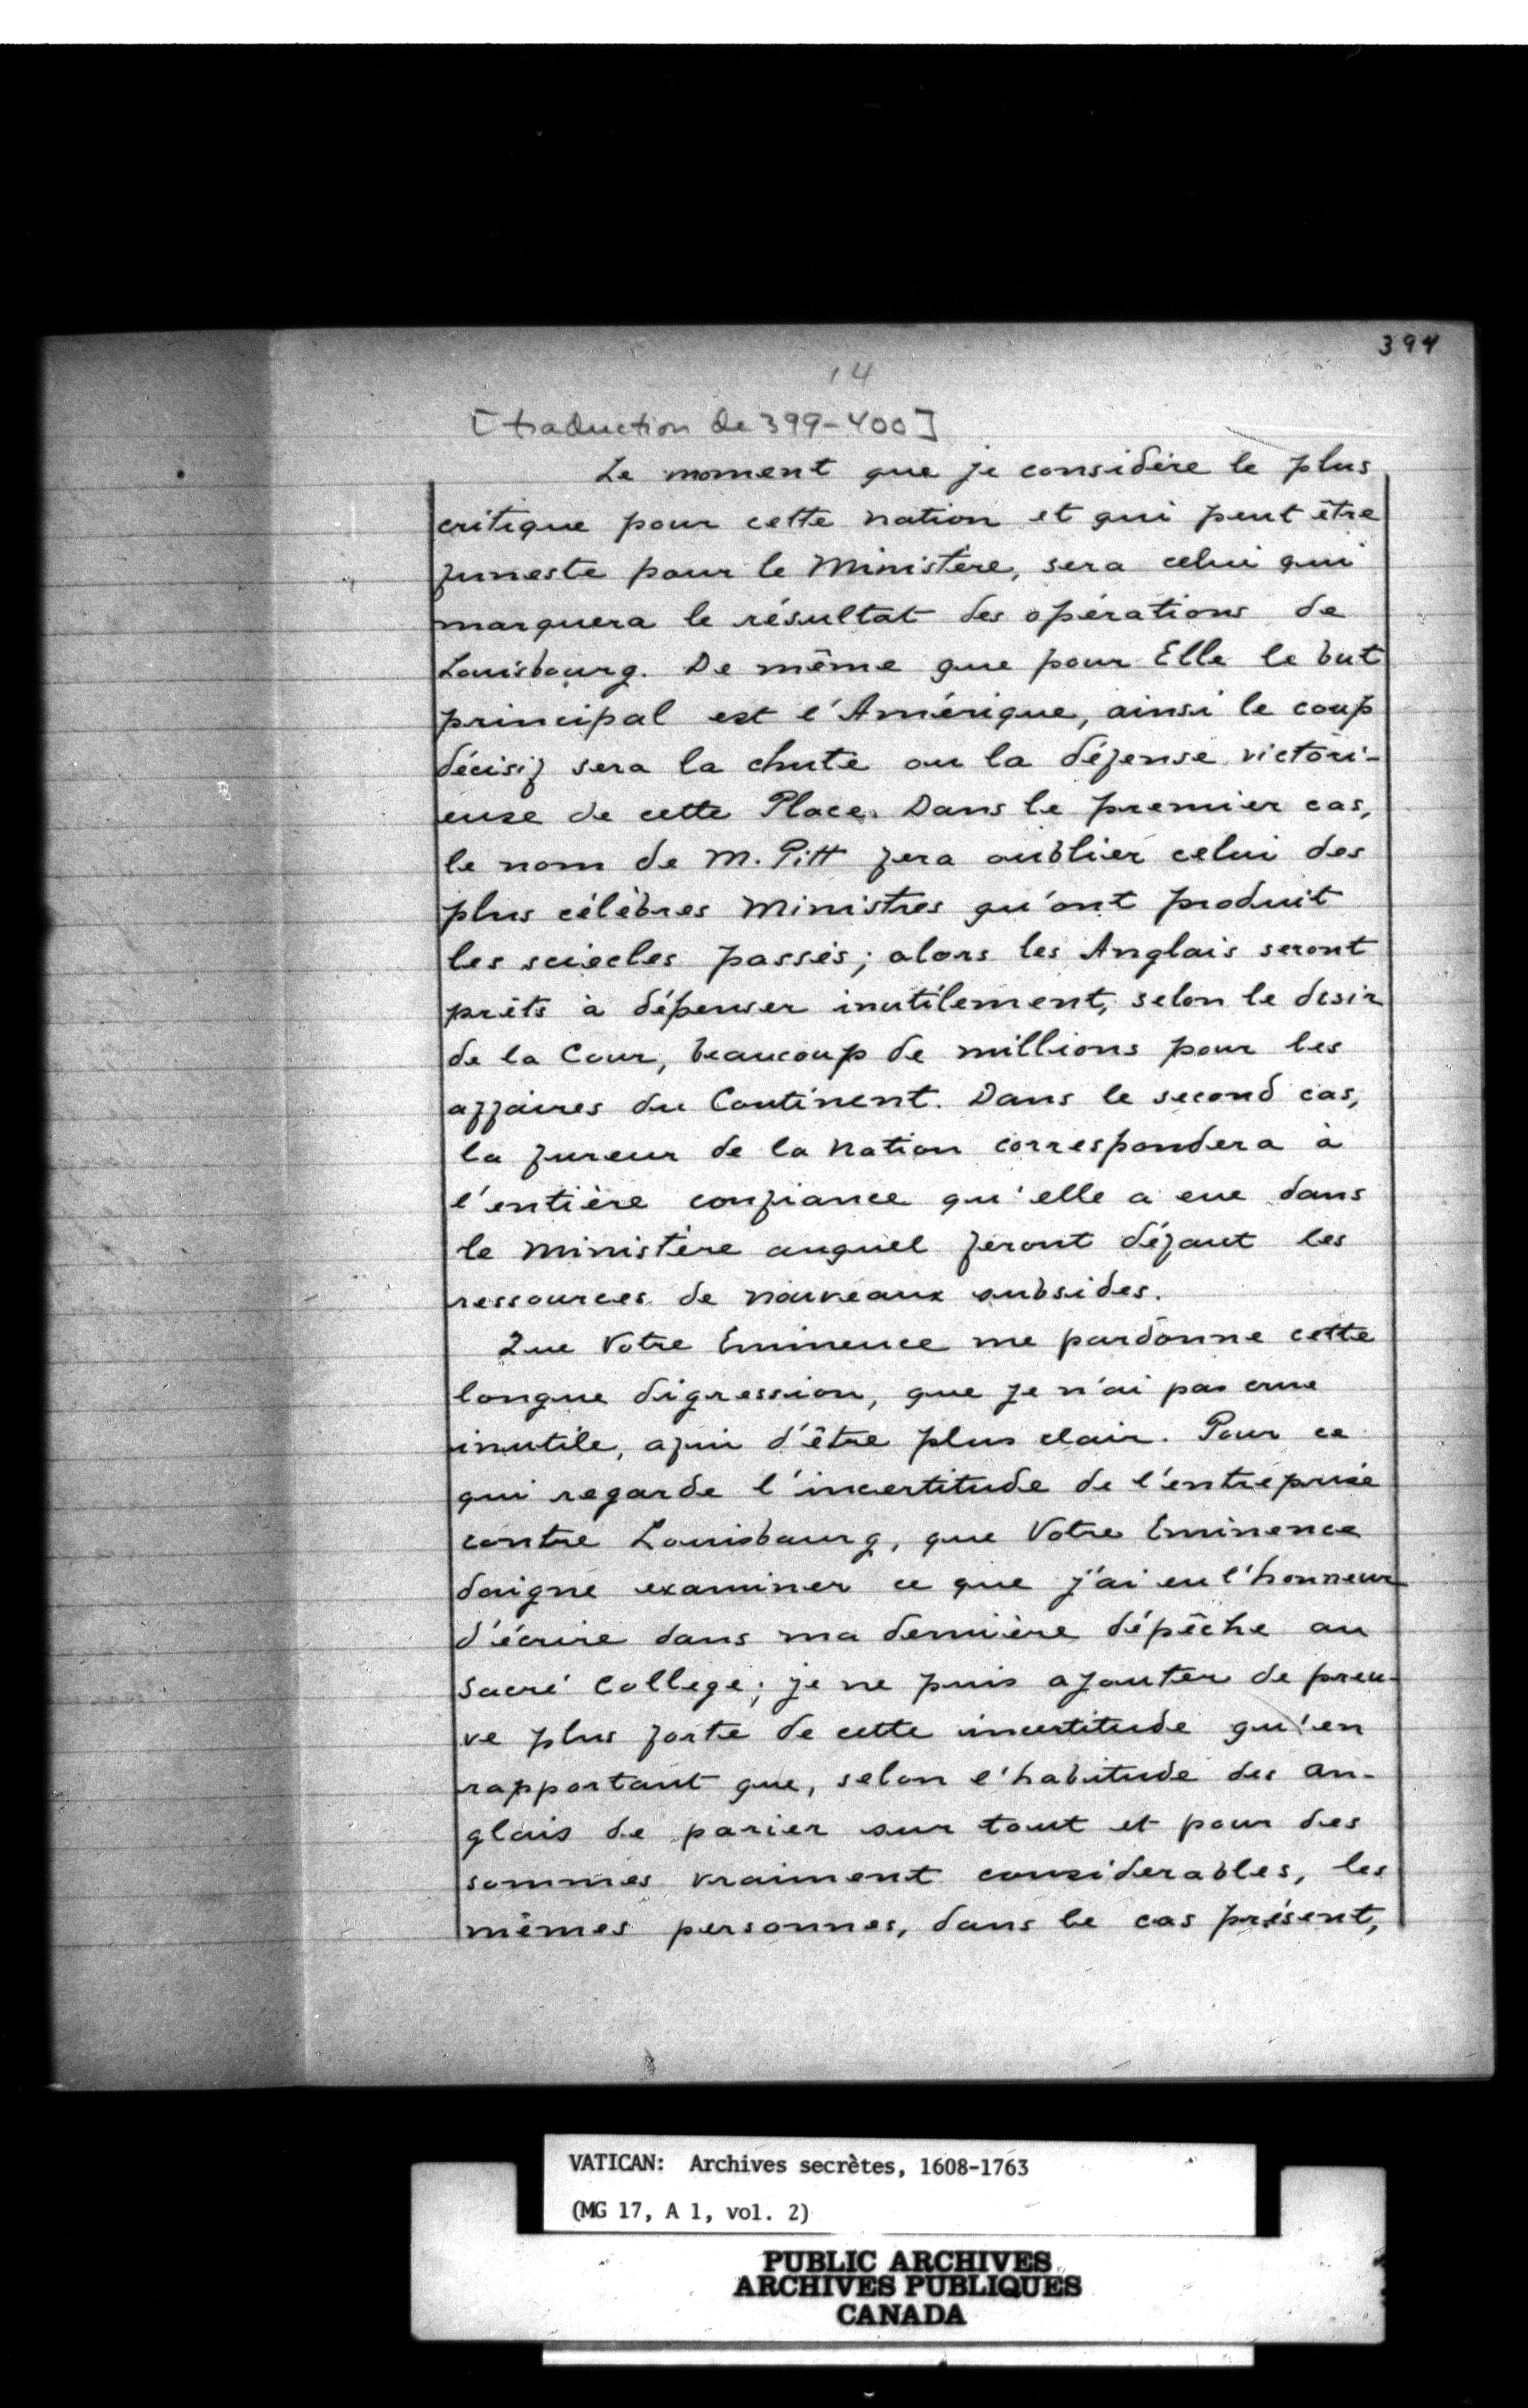 394
14
[traduction de 399-400]
Le moment que je considère le plus
critique pour cette nation et qui peut être
funeste pour le Ministère, sera celui qui
marquera le résultat des opérations de
Louisbourg. De même que pour Elle le but
principal est l'Amérique, ainsi le coup
décisif sera la chute ou la défense victori-
euse de cette Place. Dans le premier cas,
le nom de M. Pitt fera oublier celui des
plus célèbres Ministres qu'ont produit
les sciecles passés; alors les Anglais seront
prêts à dépenser inutilement, selon le desir
de la Cour, beaucoup de millions pour les
affaires du Continent. Dans le second cas,
la fureur de la nation correspondera à
l'entière confiance qu'elle a eue dans
le Ministère auquel feront défaut les
ressources de nouveaux subsides.
Que Votre Eminence me pardonne cette
longue digression, que je n'ai pas crue
inutile, afin d'être plus clair. Pour ce
qui regarde l'incertitude de l'entreprise
contre Louisbourg, que Votre Eminence
daigne examiner ce que j'ai eu l'honneur
d'écrire dans ma dernière dépêche au
Sacré College; je ne puis ajouter de preu-
ve plus forte de cette incertitude qu'en
rapportant que, selon l'habitude des An-
glais de parier sur tout et pour des
sommes vraiment considerables, les
mêmes personnes, dans le cas présent,
VATICAN: Archives secrètes, 1608-1763
(MG 17, A 1, vol. 2)
PUBLIC ARCHIVES
ARCHIVES PUBLIQUES
CANADA